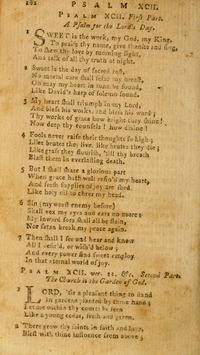 182 PSALM XCII.
PSALM XCII. First Part.
A Psalm for the Lord's Day.
1 SWEET is the work, my God, my King,
To praise thy name, give thanks and sing,
To shew thy love by morning light,
And talk of all thy truth at night.
2 Sweet is the day of sacred rest,
No mortal care shall seize my breast,
Oh may my heart in tune be found,
Like David's harp of solemn sound.
3 My heart shall triumph in my Lord,
And bless his works, and bless his word;
Thy works of grace how bright they shine!
How deep thy counsels! how divine!
4 Fools never raise their thoughts so high;
Like brutes they live, like brutes they die;
Like grass they flourish, 'till thy breath
Blast them in everlasting death.
5 But I shall share a glorious part
When grace hath well refin'd my heart,
And fresh supplies of joy are shed
Like holy oil to cheer my head.
6 Sin (my worst enemy before)
Shall vex my eyes and ears no more:
My inward foes shall all be slain,
Nor Satan break my peace again.
7 Then shall I see and hear and know
All I desir'd, or wish'd below;
And every power find sweet employ
In that eternal world of joy.
PSALM XCII. ver. 12, &c. Second Part.
The Church is the Garden of God.
1 LORD, 'tis a pleasant thing to stand
In gardens planted by thine hand;
Let me within thy courts be seen
Like a young cedar, fresh and green.
2 There grow thy saints in faith and love,
Blest with thine influence from above;